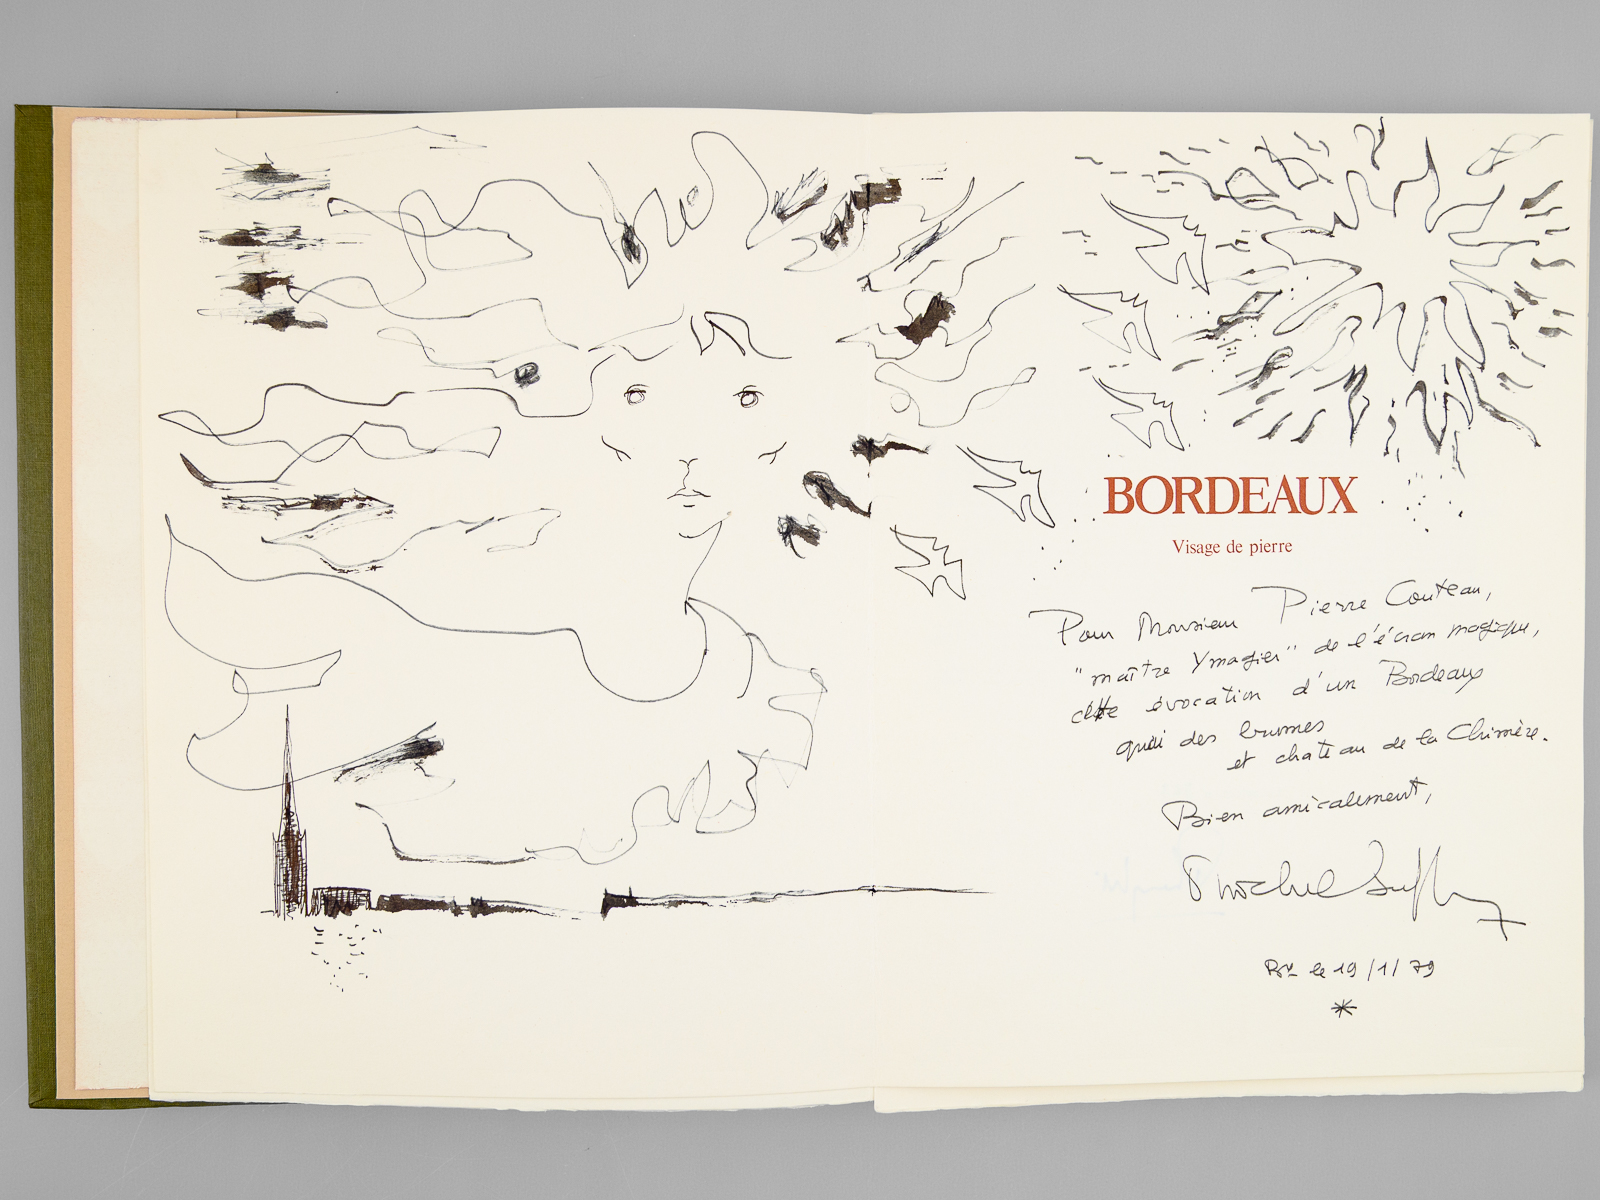 BORDEAUX
Visage de pierre
Pour Monsieur Pierre Couteau,
"maître Ymagier" de l'écran magique,
cette évocation d'un Bordeaux
quai des brumes
et chateau de la Chimère.
Bien amicalement,
Bx le 19/1/79